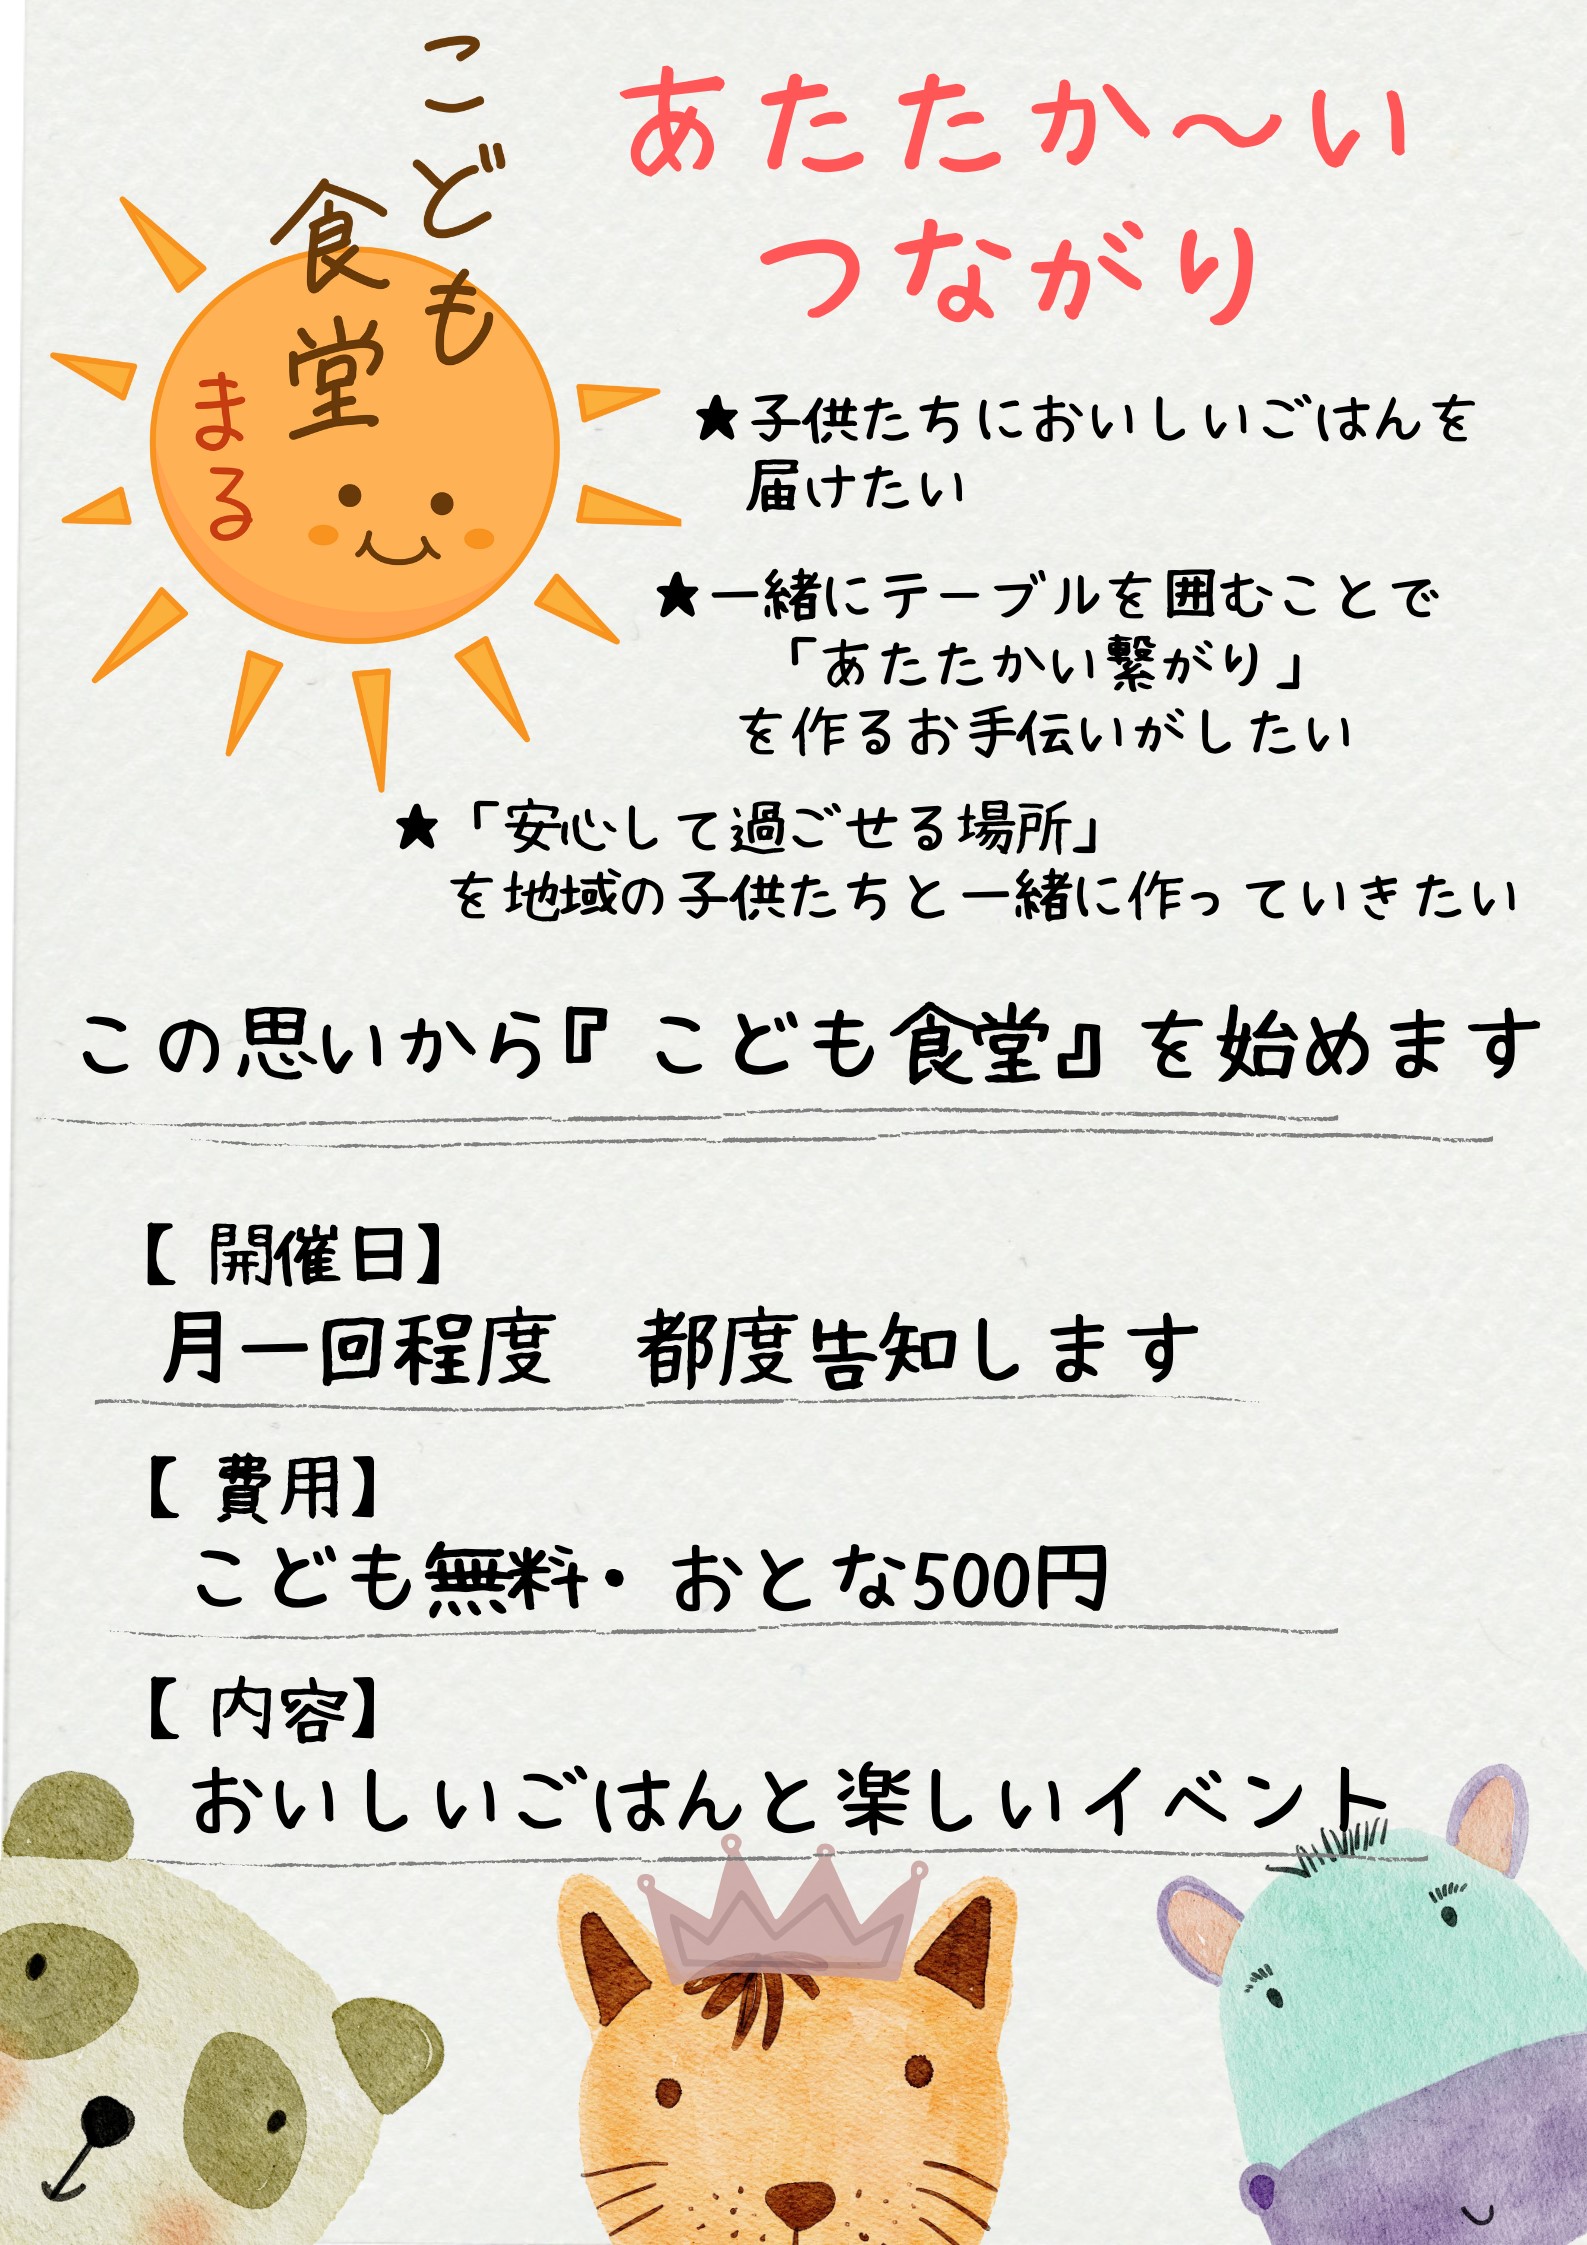 こども
食堂
まる
あたたか～い
つながり
★子供たちにおいしいごはんを
届けたい
★一緒にテーブルを囲むことで
「あたたかい繋がり」
を作るお手伝いがしたい
★「安心して過ごせる場所」
を地域の子供たちと一緒に作っていきたい
この思いから『こども食堂』を始めます
【開催日】
月一回程度　都度告知します
【費用】
こども無料・おとな500円
【内容】
おいしいごはんと楽しいイベント